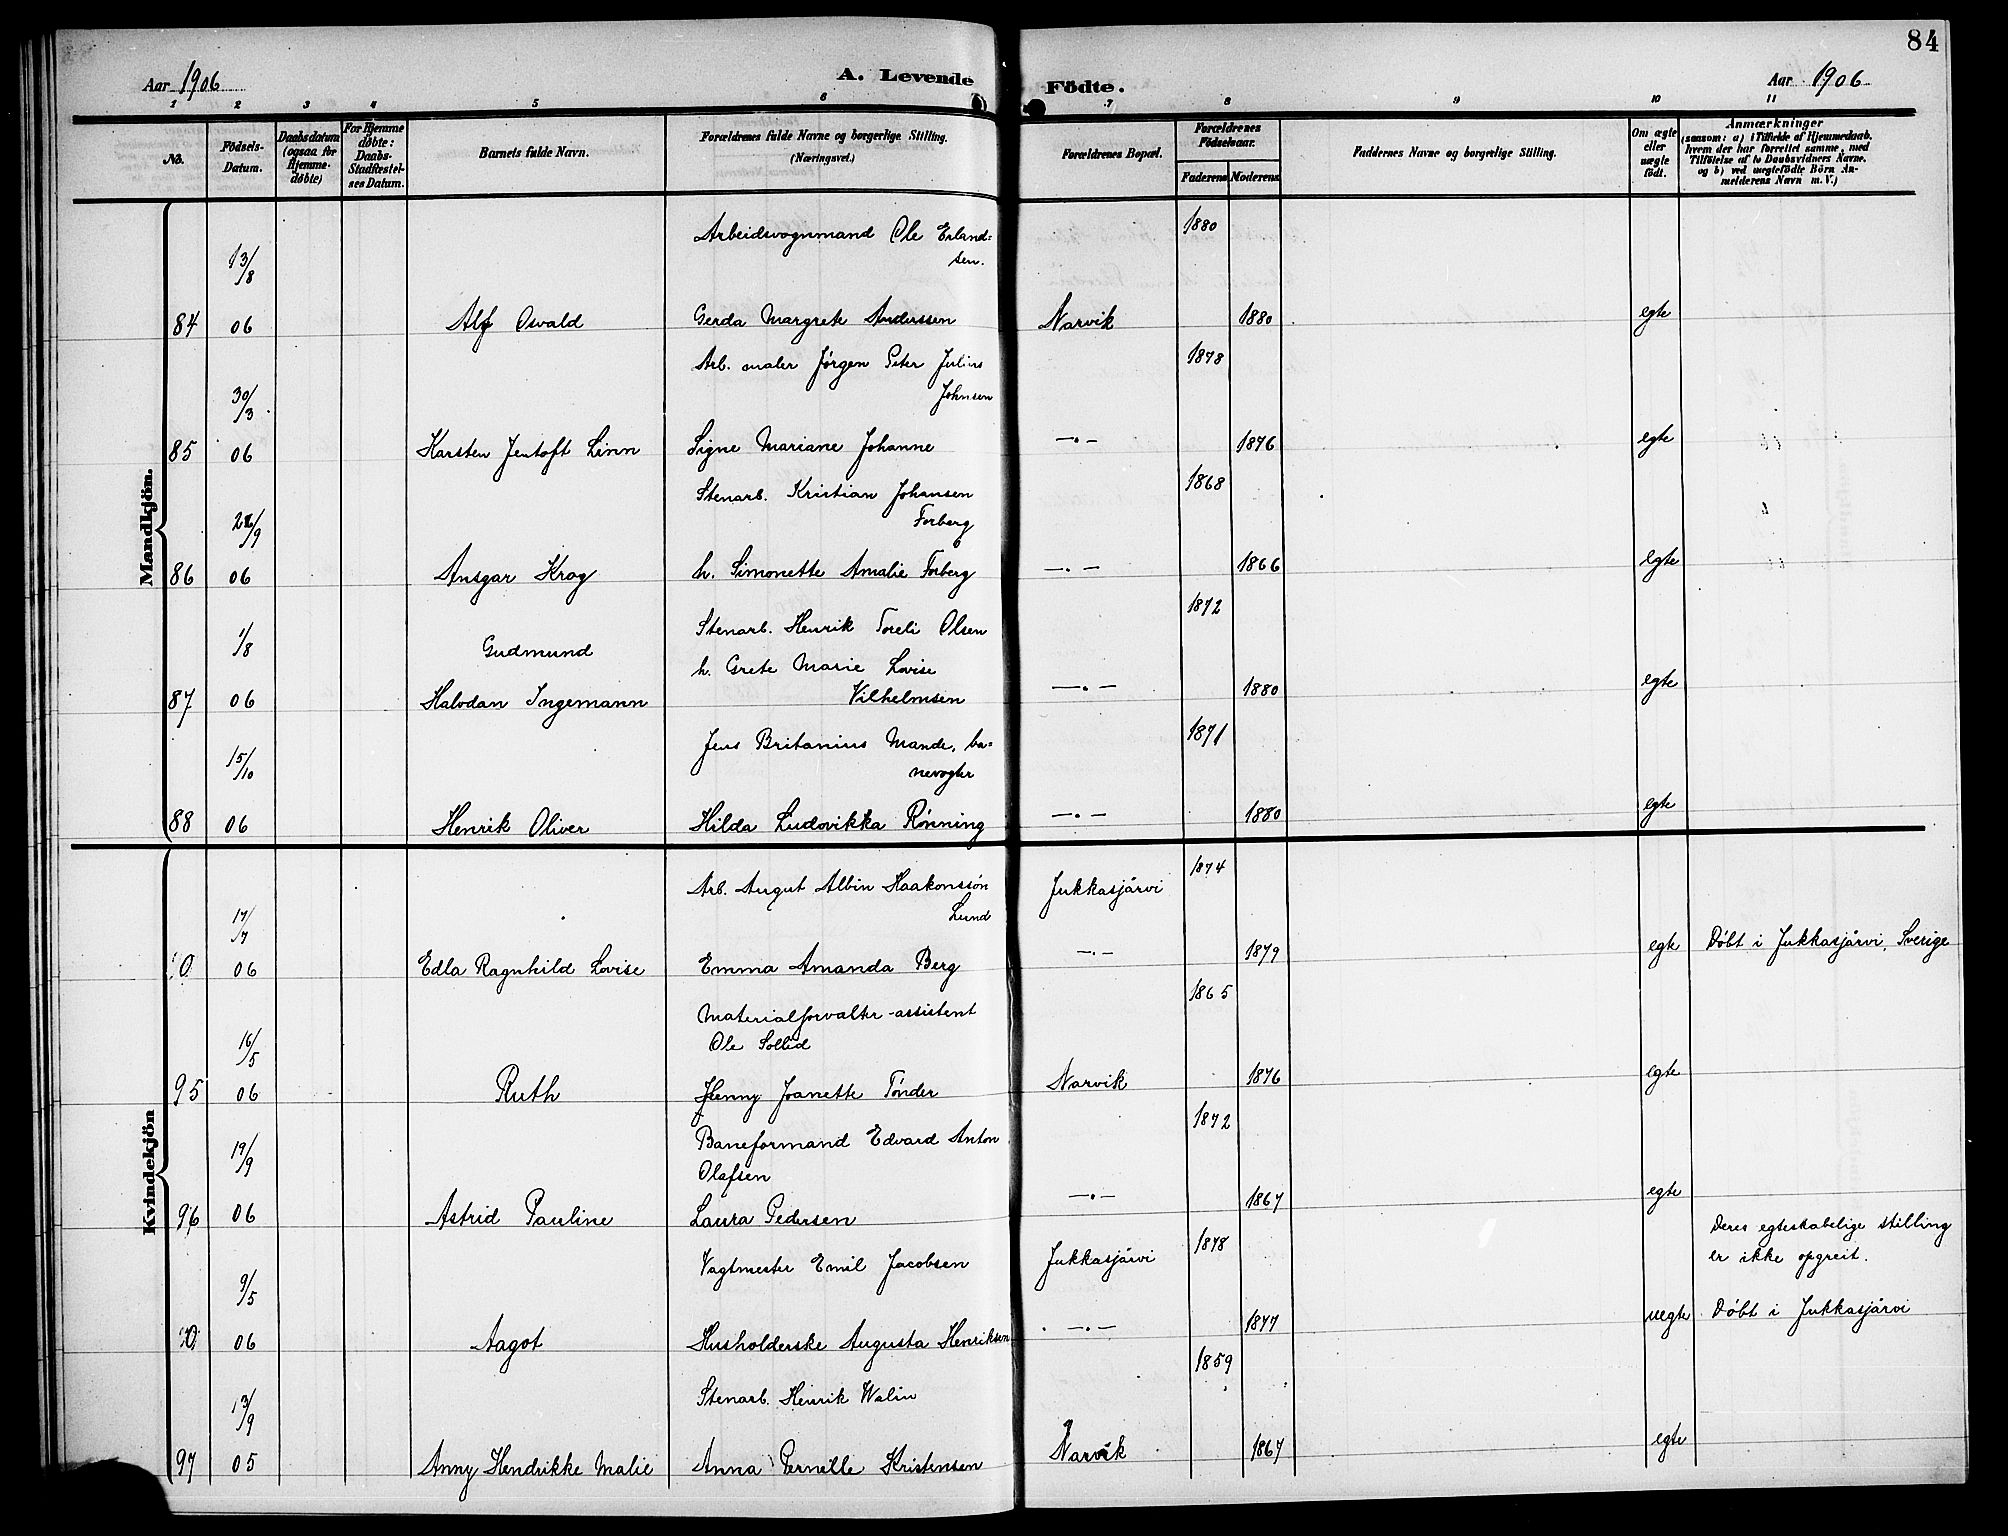 84
Aar 1906
A. Levende Födte.
Aar 1906
1 2 3 4 5 6 7 8 9 10 11
No.
Födsels-Datum.
Daabsdatum (ogsaa for Hjemme-döbte)
For Hjemme döbte: Daabs-Stadfæstel-ses Datum.
Barnets fulde Navn.
Forældrenes fulde Navne og borgerlige Stilling.
(Næringsvei.)
Forældrenes Bopæl.
Forældrenes Födselsaar.
Faderens Moderens
Faddernes Navne og borgerlige Stilling.
Om ægte eller uægte födt.
Anmærkninger
(saasom: a) i Tilfælde af Hjemmedaab,
hvem der har forrettet samme, med
Tilföielse af to Daabsvidners Navne,
og b) ved uægtefödte Börn An-
melderens Navn m. V.)
Mandkjön.
Arbeidsvognmand Ole Erland=
sen.
1880
13/8
84 06 Alf Osvald Gerda Margrete Anderssen Narvik 1880 egte
Arb. maler Jørgen Peter Julius
Johnsen
1878
30/3
85 06 Karsten Jentoft Linn Signe Mariane Johanne —·— 1876 egte
Stenarb. Kristian Johansen
Forberg
1868
26/9
86 06 Ansgar Krog h. Simonette Amalie Forberg —·— 1866 egte
1872
Stenarb. Henrik Toreli Olsen
1/8
Gudmund
h. Grete Marie Lovise
87 06 Halvdan Ingemann Vilhelmsen —·— 1880 egte
Jens Britanius Mande, ba=
nevogter
1871
15/10
88 06 Henrik Oliver Hilda Ludovikka Rønning —·— 1880 egte
Kvindekjön
Arb. Augut Albin Haakonssøn
Lund
Jukkasjärvi
1874
17/7
0 06 Edla Ragnhild Lovise Emma Amanda Berg —·— 1879 egte Döbt i Jukkasjärvi, Sverige
Materialforvalter-assistent
Ole Sollid
1865
16/5
95 06 Ruth Jenny Joanette Tønder Narvik 1876 egte
Baneformand Edvard Anton
Olafsen
1872
19/9
96 06 Astrid Pauline Laura Pedersen —·— 1867 egte
Deres egteskabelige stilling
er ikke opgreit.
Vagtmester Emil Jacobsen Jukkasjärvi 1878
9/5
0 06 Aagot Husholderske Augusta Henriksen —·— 1877 uegte Döbt i Jukkasjärvi
1859
Stenarb. Henrik Walin
13/9
97 05 Anny Hendrikke Malie Anna Pernille Kristensen Narvik 1867 egte